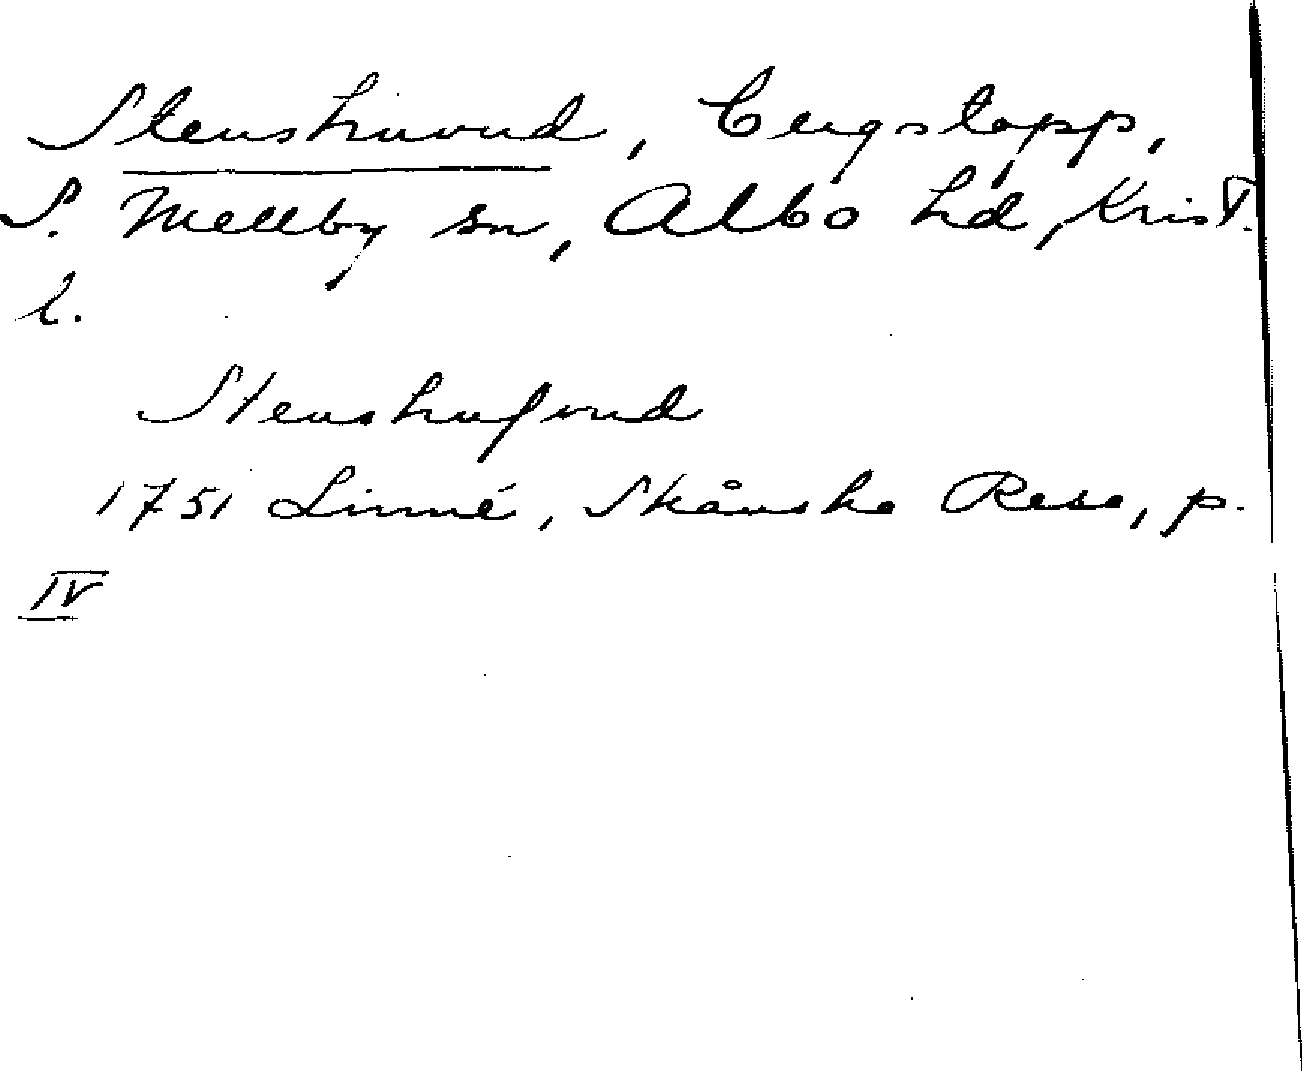 Stenshuvud, bergstopp,
S. Mellby sn, Albo hd, Krist.
l.
Stenshufvud
1751 Linné, Skånska Resa, p.
IV